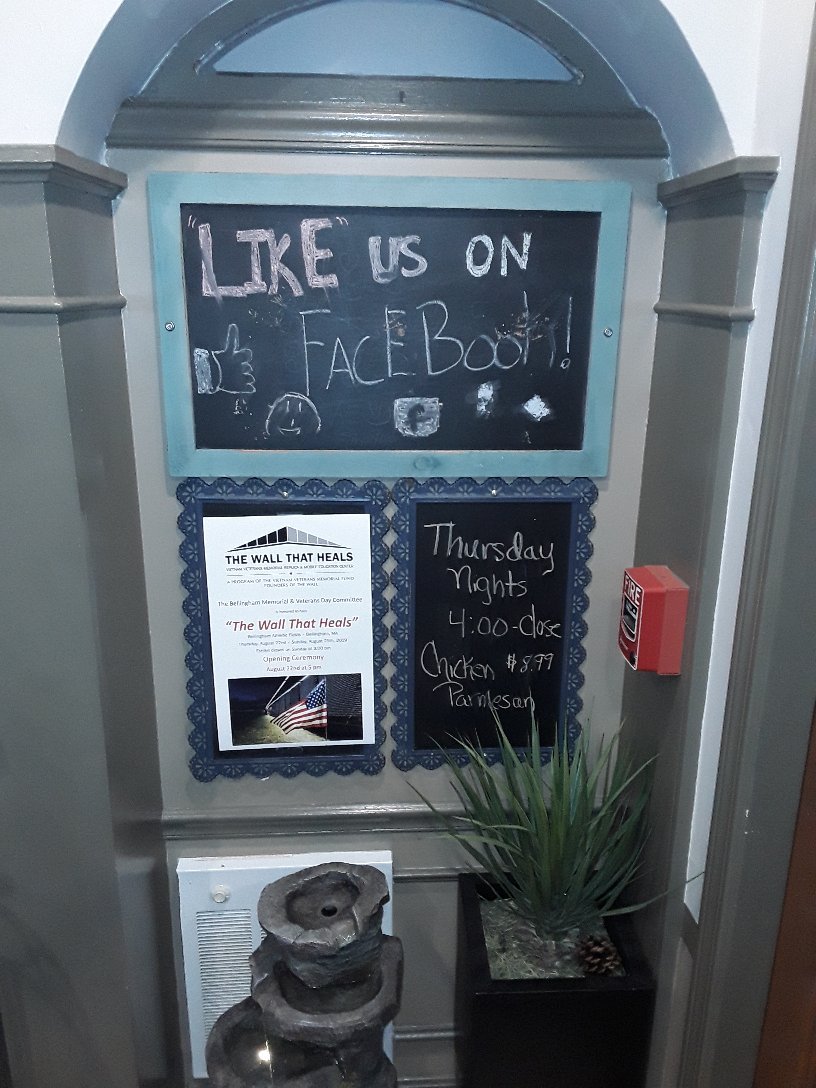 "LIKE" US ON
FACEBOOK!
f
THE WALL THAT HEALS
VIETNAM VETERANS MEMORIAL REPLICA & MOBILE EDUCATION CENTER
A PROGRAM OF THE VIETNAM VETERANS MEMORIAL FUND
FOUNDERS OF THE WALL
The Bellingham Memorial & Veterans Day Committee
is honored to host
"The Wall That Heals"
Bellingham Athletic Fields - Bellingham, MA
Thursday, August 22nd - Sunday, August 25th, 2019
Exhibit closes on Sunday at 3:00 pm
Opening Ceremony
August 22nd at 5 pm
Thursday
Nights
4:00-Close
Chicken $8.99
Parmesan
FIRE